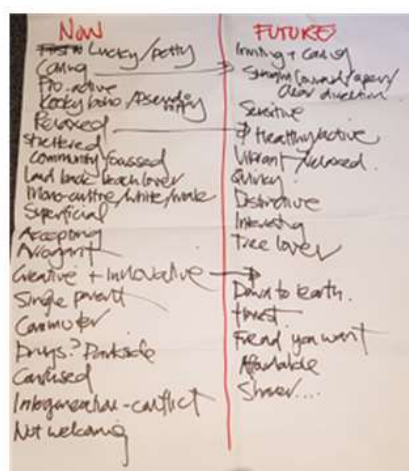 NOW
Lucky/petty
Caring
Pro-active
Kooky boho /
Relaxed
Sheltered
Community focussed
Laid back beach lover
Mono-culture/white/male
Superficial
Accepting
Arrogant
Creative + Innovative
Single parent
Commuter
Drugs? Darkside
Confused
Intergeneration-conflict
Not welcoming
FUTURE
Inviting + caring
clear direction
Sensitive
Healthy/active
Vibrant/relaxed.
Quirky
Distinctive
Interesting
Tree lover
Down to earth.
Honest
Friend you want
Affordable
Sharer...